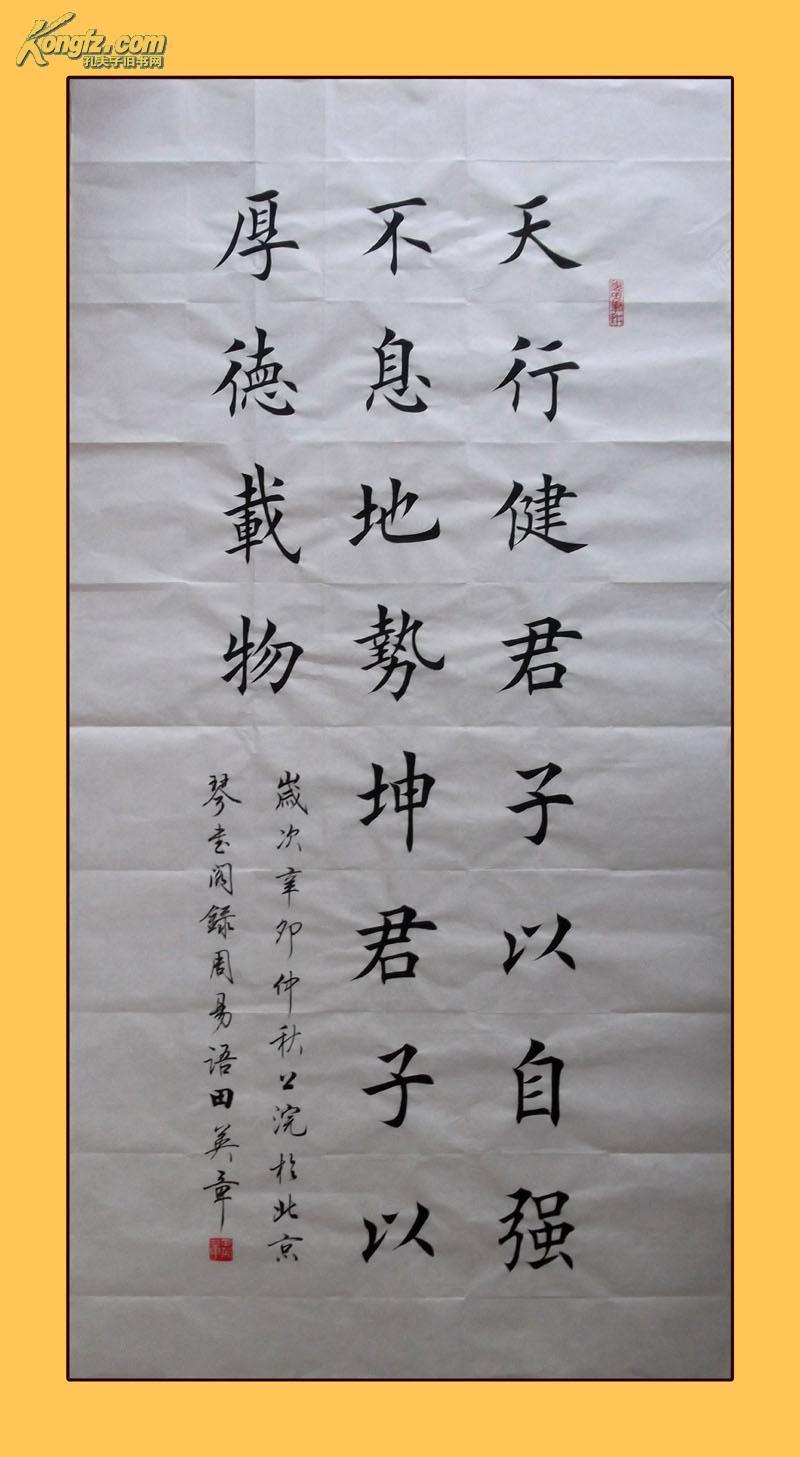 Kongfz.com
孔夫子旧书网
天行健君子以自强
不息地勢坤君子以
厚德載物
歲次辛卯仲秋公浣於北京
琴书阁録周易语田英章